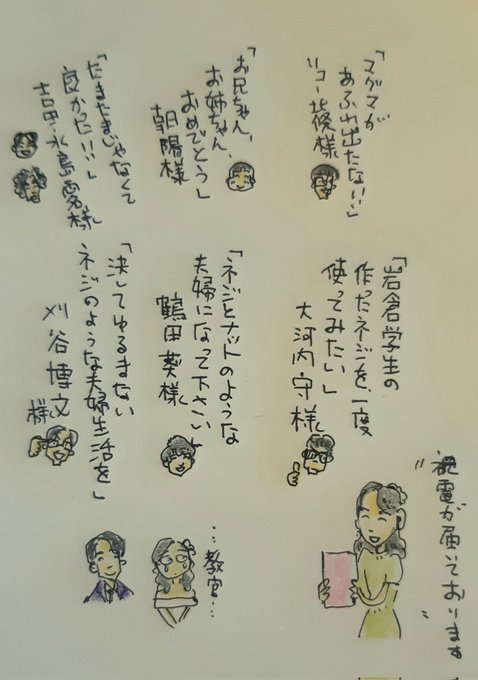 〃祝電が届いております〃
「岩倉学生の
作ったネジを、一度
使ってみたい」
大河内守様
「ネジとナットのような
夫婦になって下さい」
鶴田葵様
「決してゆるまない
ネジのような夫婦生活を」
刈谷博文様
「マグマが
あふれ出たない!!」
リュー北條様
「お兄ちゃん、
お姉ちゃん、
おめでとう」
朝陽様
「たまたまじゃなくて
良かった!!」
吉田・水島 様
…教官…